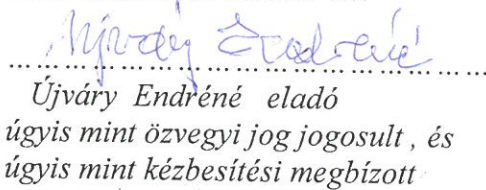 Újváry Endréné
Újváry Endréné eladó
úgyis mint özvegyi jog jogosult, és
úgyis mint kézbesítési megbízott